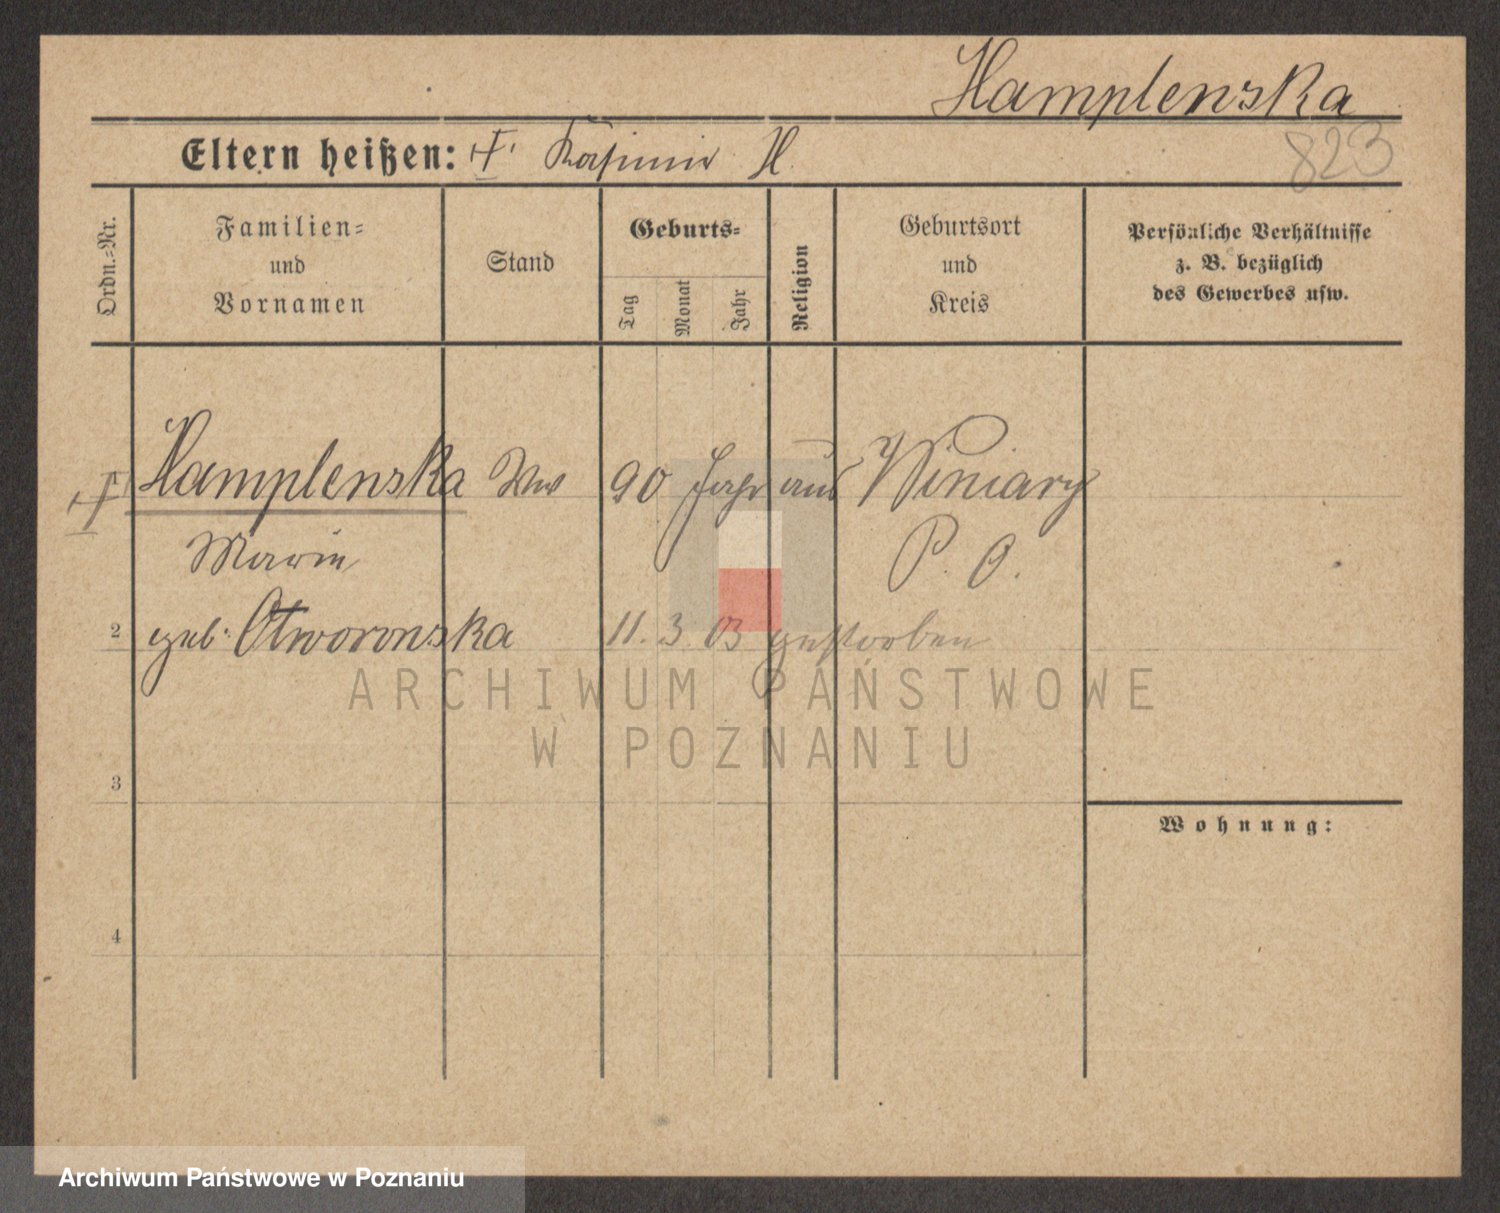 Hamplenska
823
Eltern heißen: † Kasimir H.
Ordn.-Nr.
Familien-
und
Vornamen
Stand
Geburts-
Tag
Monat
Jahr
Religion
Geburtsort
und
Kreis
Persönliche Verhältnisse
z. B. bezüglich
des Gewerbes usw.
† Hamplenska Ww 90 Jahr aus Winiary
Marie P. O.
2 geb. Otworowska 11. 3. 03 gestorben
ARCHIWUM PAŃSTWOWE
W POZNANIU
3
Wohnung:
4
Archiwum Państwowe w Poznaniu